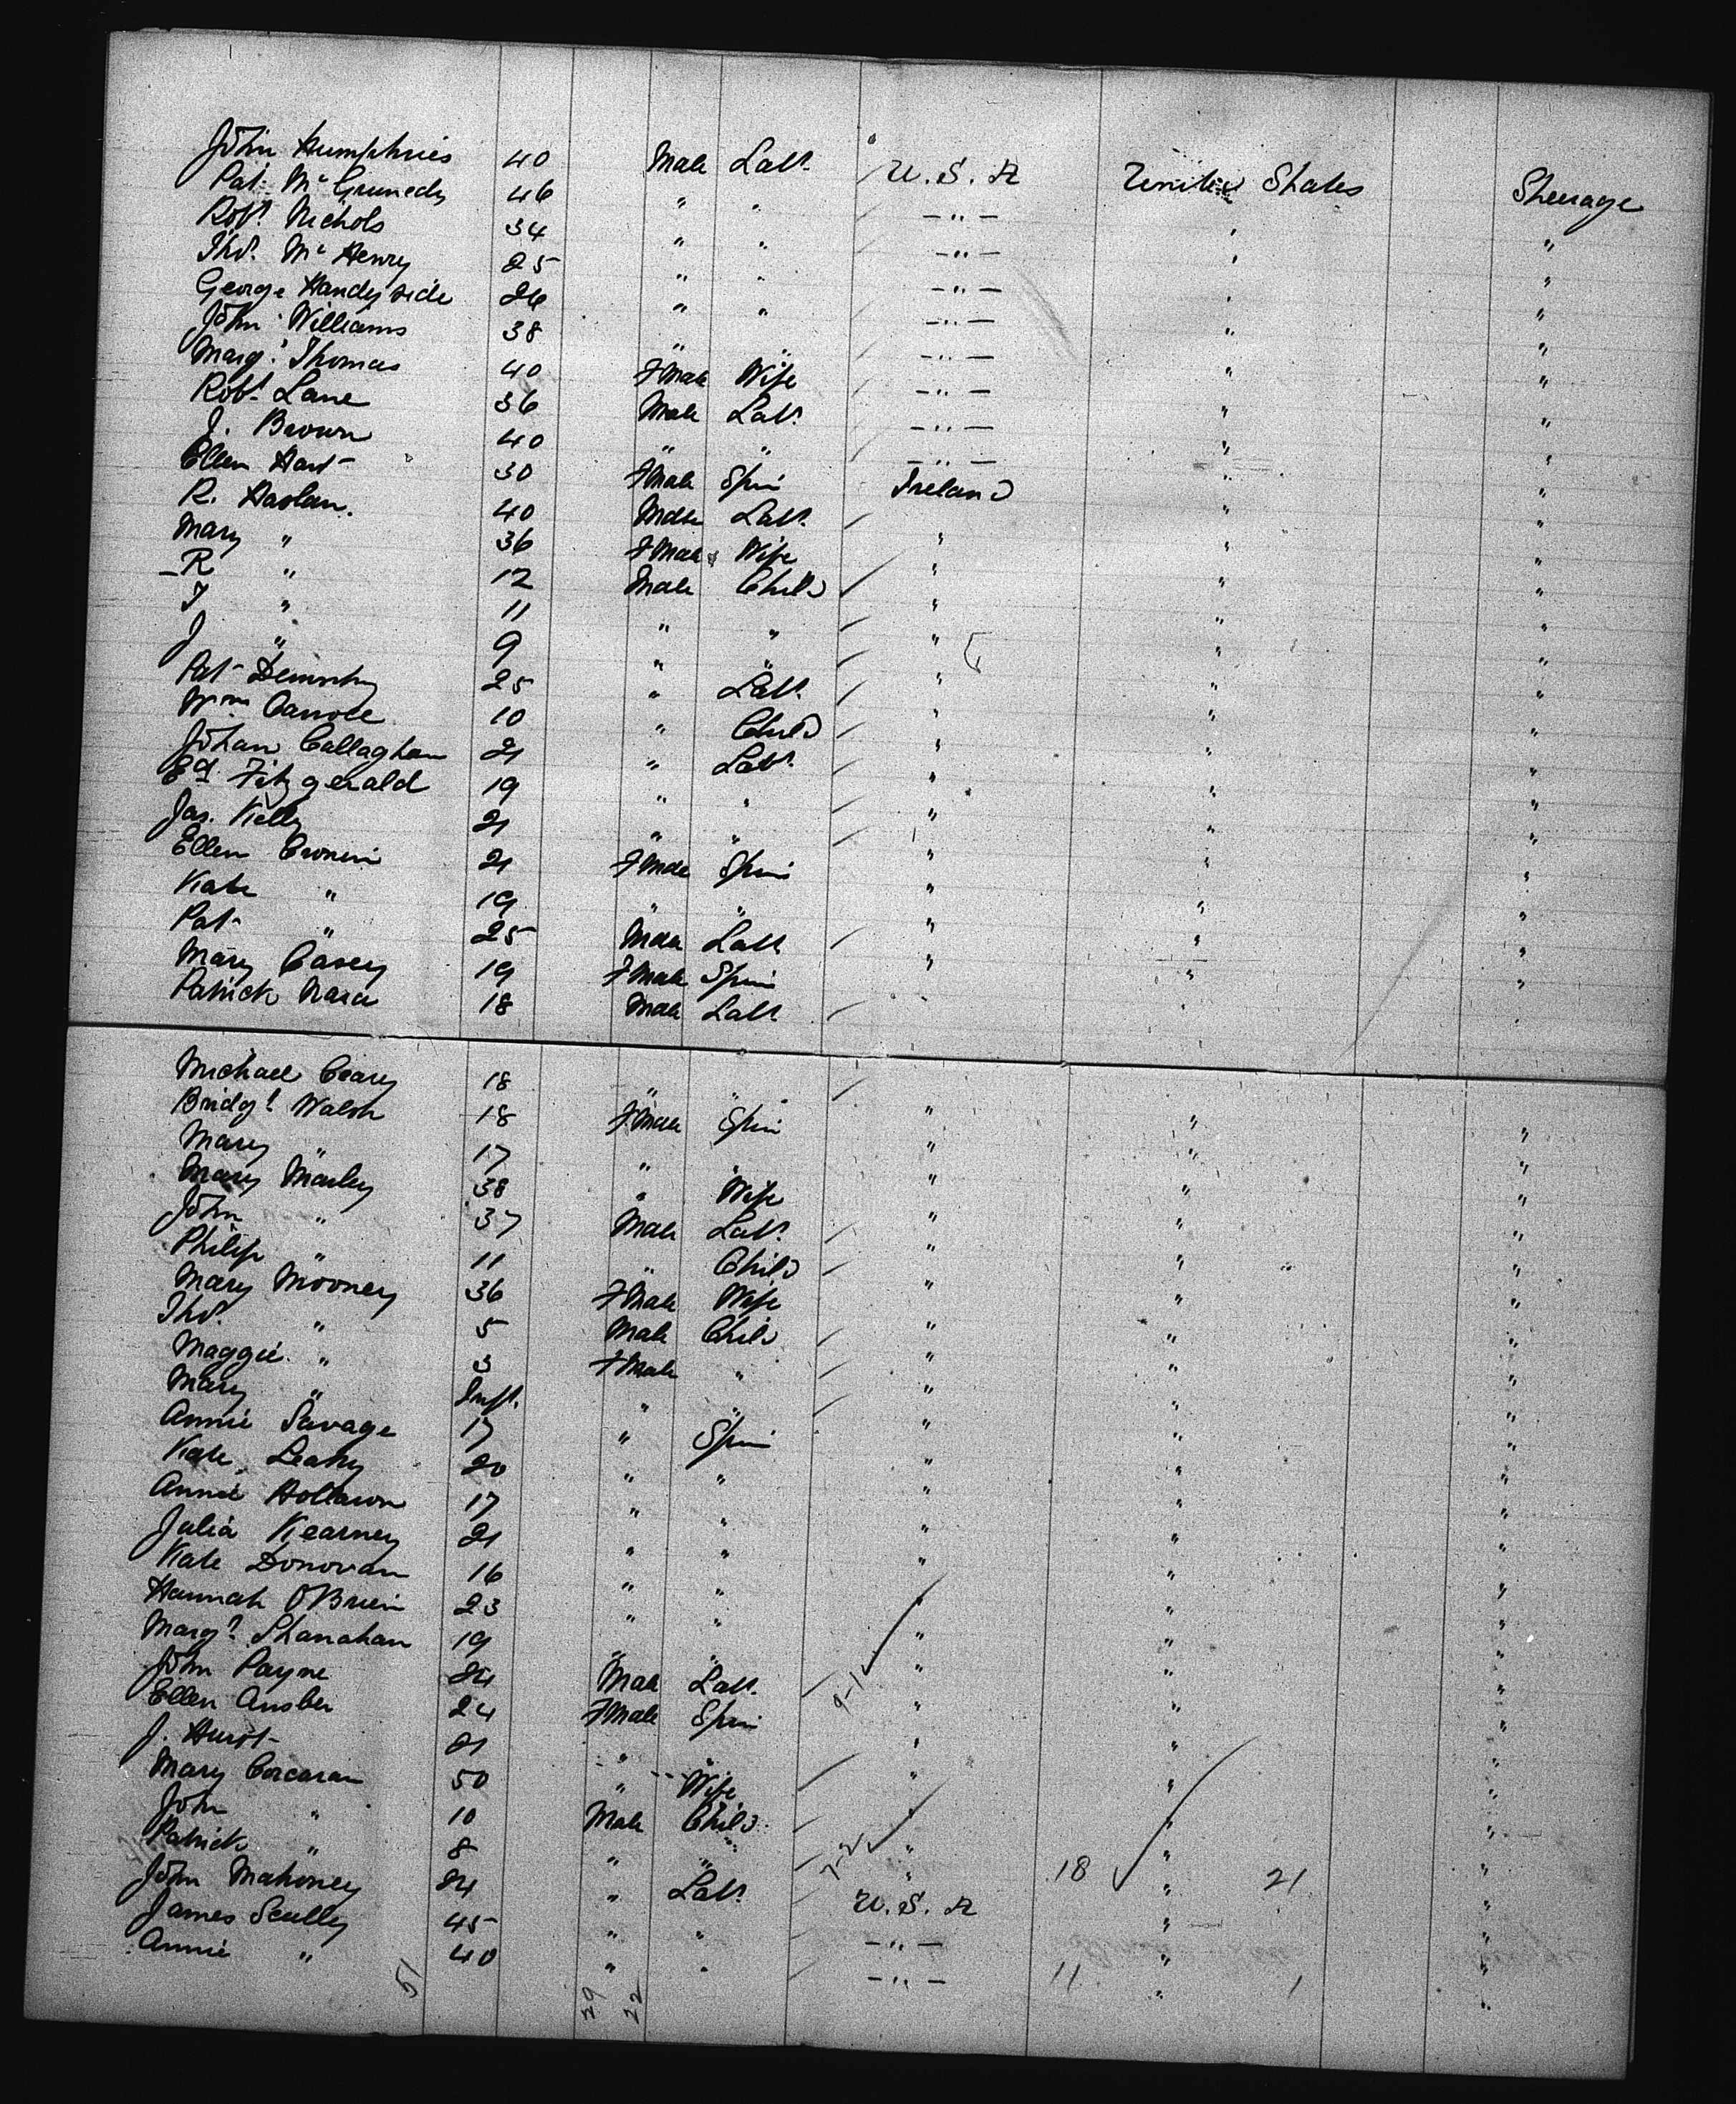 John Humphries 40 Male Labr. U.S.A United States Steerage
Pat. McGrunedy 46 " " —"— " "
Robt. Nichols 34 " " —"— " "
Thos. McHenry 25 " " —"— " "
George Handyside 26 " " —"— " "
John Williams 38 " " —"— " "
Margt. Thomas 40 FMale Wife —"— " "
Robt. Lane 36 Male Labr. —"— " "
J. Brown 40 " " —"— " "
Ellen Hart 30 FMale Spin Ireland " "
R. Haslam. 40 Male Labr. " " "
Mary " 36 FMale Wife " " "
R " 12 Male Child " " "
T " 11 " " " " "
J " 9 " " " " "
Pat Dempsey 25 " Labr. " " "
Wm. Carroll 10 " Child " " "
Johan Callaghan 21 " Labr. " " "
Ed. Fitzgerald 19 " " " " "
Jas. Kelly 21 " " " " "
Ellen Cronin 21 FMale Spin " " "
Kate " 19 " " " " "
Pat " 25 Male Labr " " "
Mary Casey 19 FMale Spin " " "
Patrick 18 Male Labr " "
Michael Geary 18 " " " " "
Bridgt. Walsh 18 FMale Spin " " "
Mary " 17 " " " " "
Mary Marley 38 " Wife " " "
John " 37 Male Labr. " " "
Philip " 11 " Child " " "
Mary Mooney 36 FMale Wife " " "
Thos. " 5 Male Child " " "
Maggie. " 3 FMale " " " "
Mary " Inft. " " " " "
Annie Savage 17 " Spin " " "
Kate Leahy 20 " " " " "
Annie 17 " " " " "
Julia Kearney 21 " " " " "
Kate Donovan 16 " " " " "
Hannah O'Brien 23 " " " " "
Margt. Shanahan 19 " " " " "
John Payne 24 Male Labr. 9-1 " " "
Ellen 24 FMale Spin " " "
J. Hurst 21 " " " " "
Mary Corcoran 50 " Wife " " "
John " 10 Male Child " " "
Patrick " 8 " " 7-2 " " "
John Mahoney 24 " Labr. U.S.A 18 " 21 "
James Scully 45 " " —"— " "
Annie " 40 " " —"— 11 " 1 "
51 29 22